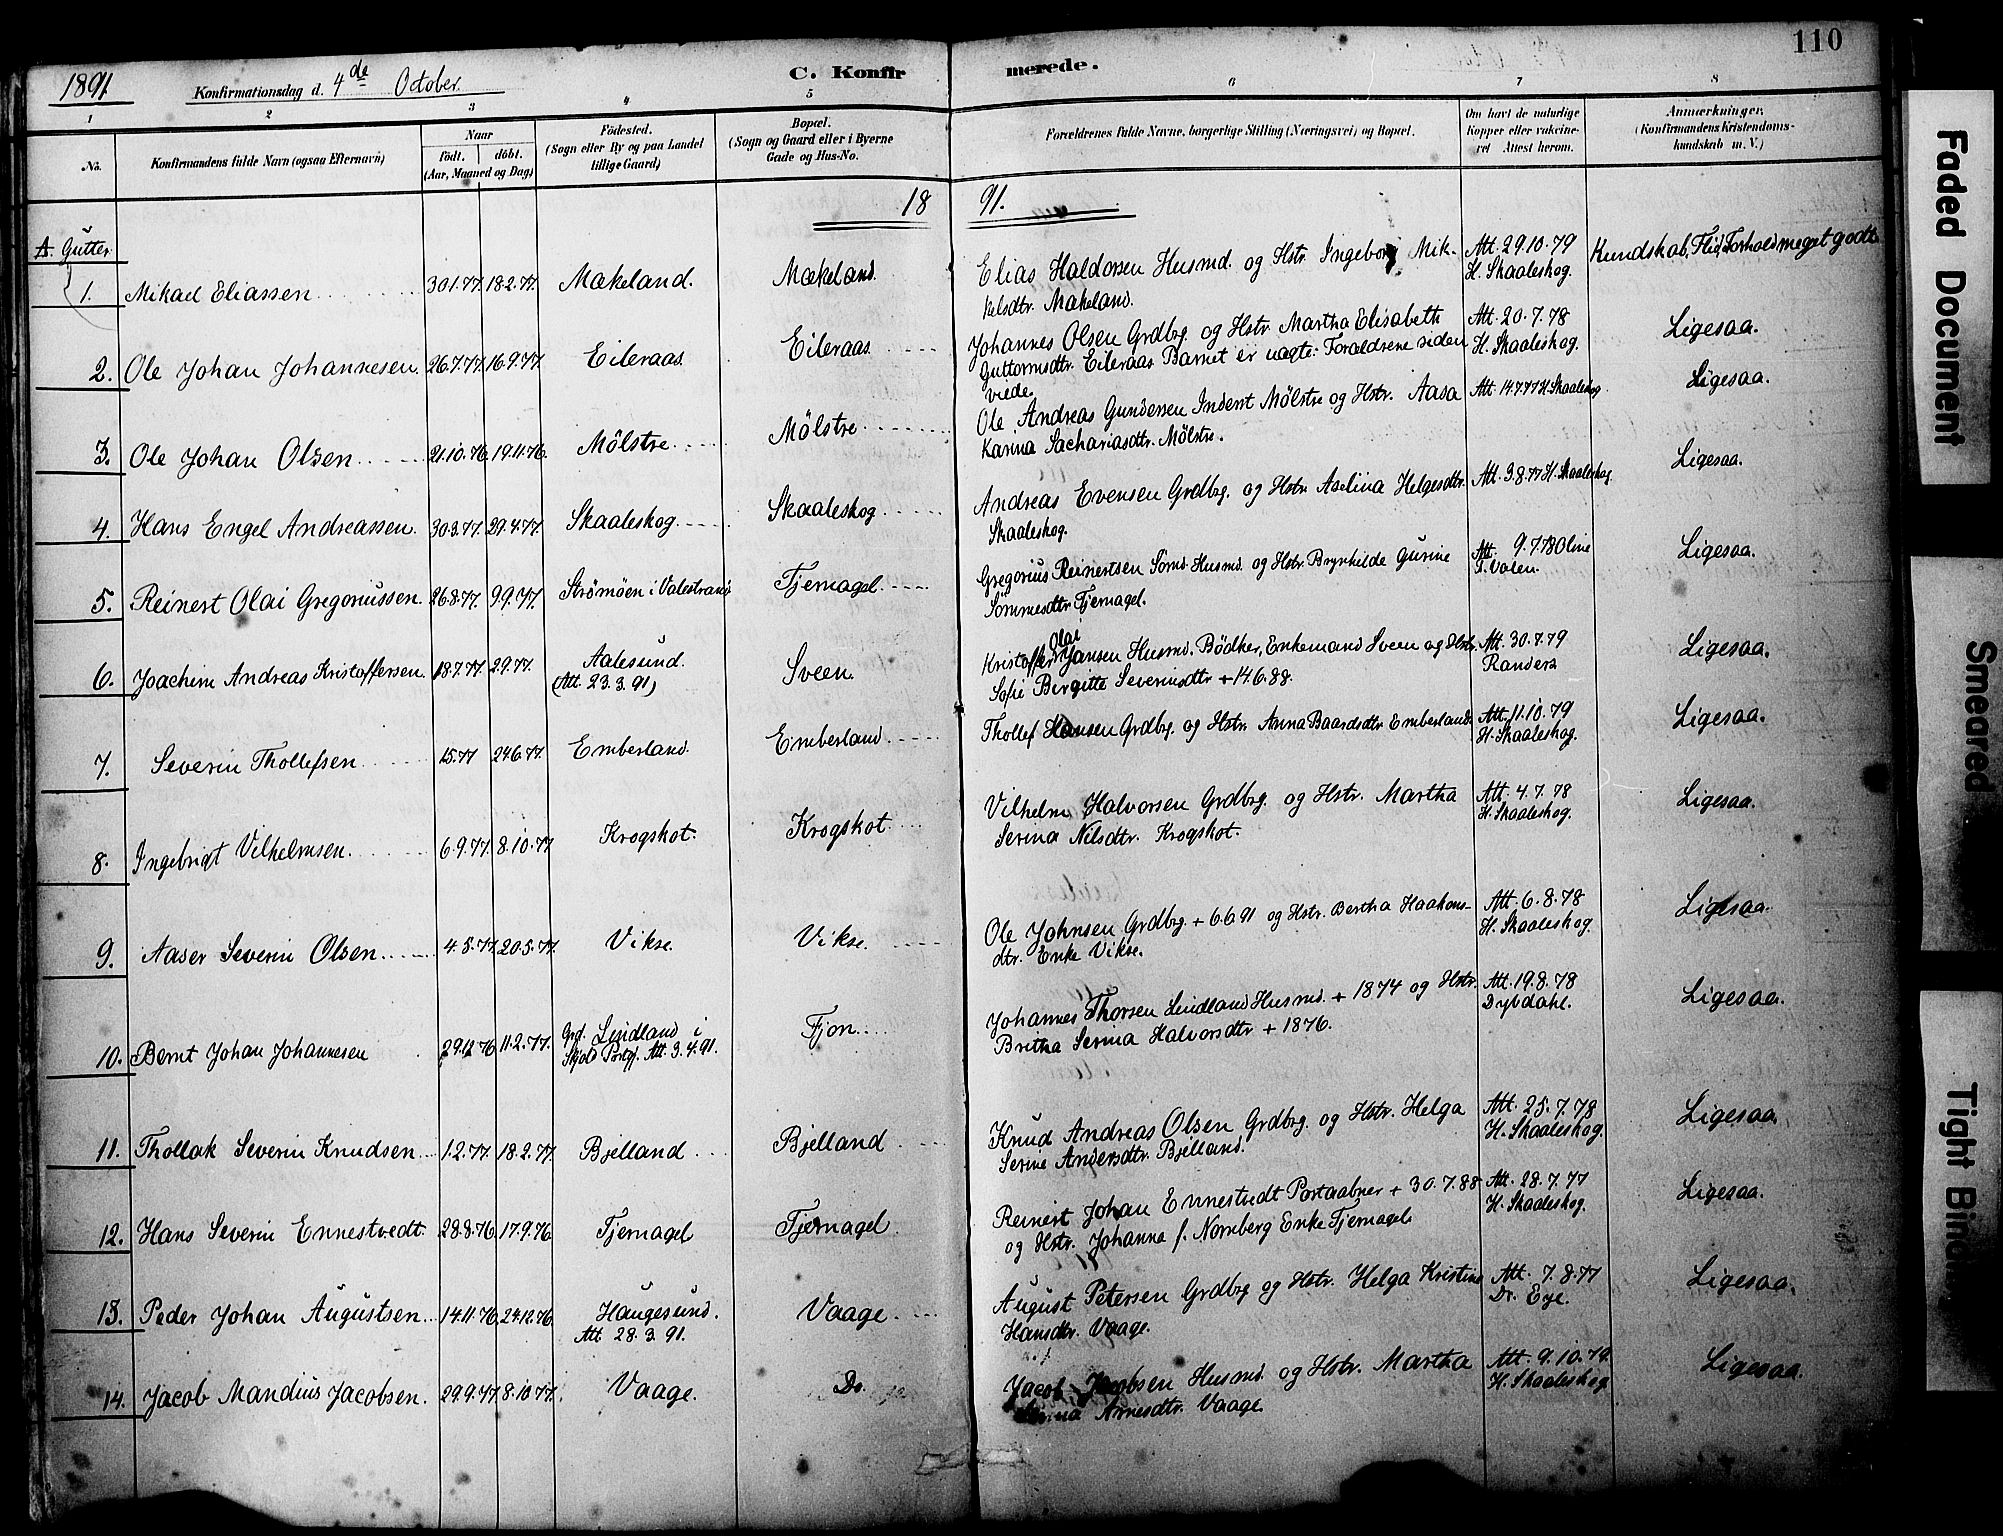 110
1891. Konfirmationsdag d. 4de October. C. Konfir merede.
1 2 3 4 5 6 7 8
No. Konfirmandens fulde Navn (ogsaa Efternavn) Naar födt. döbt. (Aar, Maaned og Dag)
Födested. (Sogn eller By og paa Landet tillige Gaard)
Bopæl. (Sogn og Gaard eller i Byerne Gade og Hus-No.
Forældrenes fulde Navne, borgerlige Stilling (Næringsvei) og Bopæl.
Om havt de naturlige Kopper eller vakcine- ret Attest herom.
Anmærkninger. (Konfirmandens Kristendoms- kundskab m. V.)
18 91.
A. Gutter
1. Mikael Eliassen 30.1.77. 18.2.77. Mækeland. Mækeland. Elias Haldorsen Husmd. og Hstr. Ingeborg Mik- Att. 29.10.79 Kundskab, Flid, Forhold meget godt
kelsdtr. Mækeland. H. Skaaleskog.
2. Ole Johan Johannesen. 26.7.77. 16.9.77. Eileraas. Eileraas. Johannes Olsen Grdbrg. og Hstr. Martha Elisabeth Att. 20.7.78 Ligesaa.
Guttormsdtr. Eileraas Barnet er uægte. Forældrene siden H. Skaaleskog.
viede.
3. Ole Johan Olsen 21.10.76. 19.11.76. Mölstre. Mölstre Ole Andreas Gundersen Inderst Mölstre og Hstr. Aasa Att. 14.7.77 H. Skaaleskog Ligesaa.
Karina Sachariasdtr. Mölstre.
4. Hans Engel Andreassen. 30.3.77. 29.4.77. Skaaleskog. Skaaleskog. Andreas Evensen Grdbrg. og Hstr. Aselina Helgesdtr. Att. 3.8.77 H. Skaaleskog Ligesaa.
Skaaleskog.
5. Reinert Olai Gregoriussen. 26.8.77. 9.9.77. Strömöen i Valestrand. Tjernagel. Gregorius Reinertsen Sömd. Husmd. og Hstr. Brynhilde Gurine Att. 9.7.78 Oline Ligesaa.
Sömmesdtr. Tjernagel. S. Valen.
6. Joachim Andreas Kristoffersen. 18.7.77. 2.9.77. Aalesund. Sveen. Kristoffer Olai Jansen Husmd. Bödker, Enkemand Sveen og Hstr. Att. 30.7.79 Ligesaa.
(Att. 23.3.91) Sofie Birgitte Severinsdtr + 14.6.88. Randers
7. Severin Thollefsen 1.5.77 24.6.77. Emberland. Emberland. Thollef Hansen Grdbrg. og Hstr. Anna Baardsdtr. Emberland. Att. 11.10.79 Ligesaa.
H. Skaaleskog.
8. Ingebrigt Vilhelmsen. 6.9.77. 8.10.77 Krogskot. Krogskot. Vilhelm Halvorsen Grdbrg. og Hstr. Martha Att. 4.7.78 Ligesaa.
Serina Nilsdtr. Krogskot. H. Skaaleskog.
9. Aaser Severin Olsen. 4.5.77. 20.5.77. Vikse. Vikse. Ole Johnsen Grdbrg. + 6.6.91 og Hstr. Bertha Haakons- Att. 6.8.78 Ligesaa.
dtr. Enke Vikse. H. Skaaleskog.
10. Bernt Johan Johannesen 29.12.76 11.2.77. Grd. Lindland i Fjon. Johannes Thorsen Lindland Husmd. + 1874 og Hstr. Att. 19.8.78 Ligesaa.
Skjold Præstgj. Att. 3.4.91. Britha Serina Halvorsdtr + 1876. Dybdahl.
11. Thollak Severin Knudsen 1.2.77. 18.2.77. Bjelland Bjelland Knud Andreas Olsen Grdbrg. og Hstr. Helga Att. 25.7.78 Ligesaa.
Serine Andersdtr. Bjelland. H. Skaaleskog.
12. Hans Severin Ennestvedt. 28.8.76. 17.9.76. Tjernagel Tjernagel. Reinert Johan Ennestvedt Postaabner + 30.7.88 Att. 28.7.77 Ligesaa.
og Hstr. Johanna f. Nornberg Enke Tjernagel. H. Skaaleskog.
13. Peder Johan Augustsen. 14.11.76. 24.12.76. Haugesund. Vaage. August Petersen Grdbrg og Hstr. Helga Kristine Att. 7.8.77 Ligesaa.
Att. 28.3.91. Hansdtr. Vaage. Dr. Eye.
14. Jacob Mandius Jacobsen. 29.9.77. 8.10.77. Vaage. Do. Jacob Jacobsen Husmd. og Hstr. Martha Att. 9.10.79. Ligesaa.
Serina Arnesdtr. Vaage. H. Skaaleskog.
Faded Document
Smeared
Tight Bind